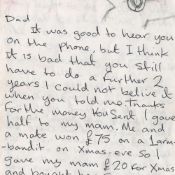 Dad
It was good to hear you
on the phone, but I think
it is bad that you still
have to do a further 2
years I could not belive it
when you told me. Thanks
for the money you sent I gave
half to my mam. Me and
a mate won £75 on a 1 arm
-bandit on Xmas-eve so I
gave my mam £20 for Xmas
and bought